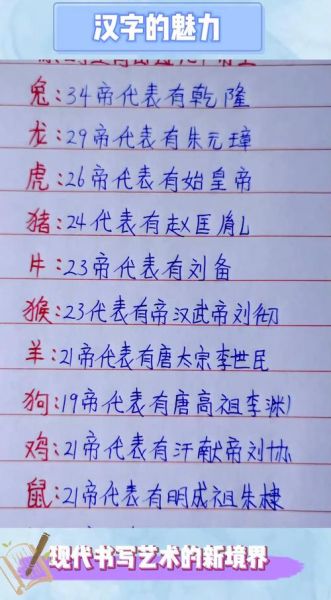 汉字的魅力
兔:34帝代表有乾隆
龙:29帝代表有朱元璋
虎:26帝代表有始皇帝
猪:24代表有赵匡胤
牛:23帝代表有刘备
猴:23代表有帝汉武帝刘彻
羊:21帝代表有唐太宗李世民
狗:19帝代表有唐高祖李渊
鸡:21帝代表有汗献帝刘协
鼠:21帝代表有明成祖朱棣
现代书写艺术的新境界